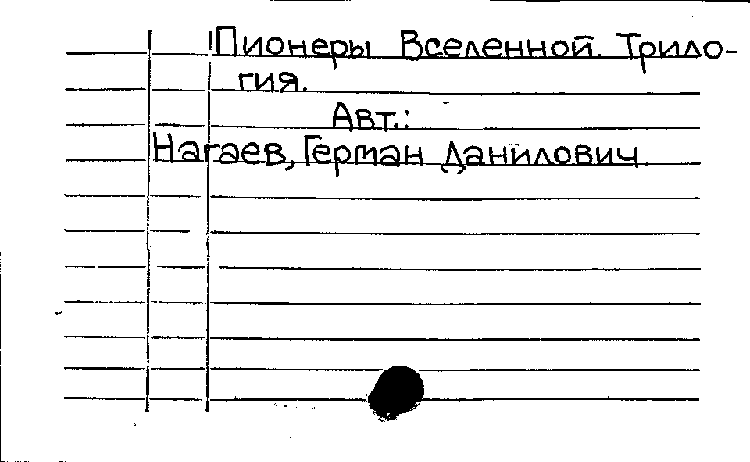 Пионеры Вселенной. Трило-
гия.
Авт.:
Нагаев, Герман Данилович.